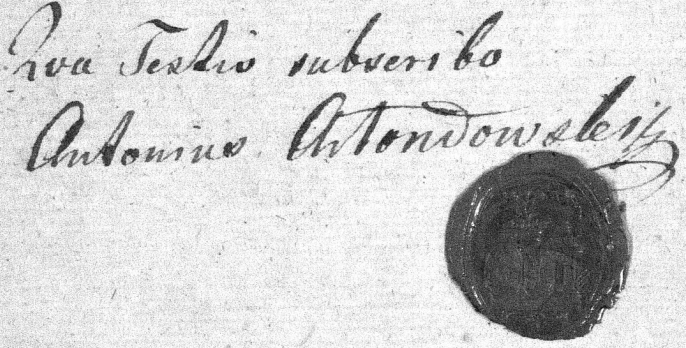 Qva Testis subscribo
Antonius Artondowski